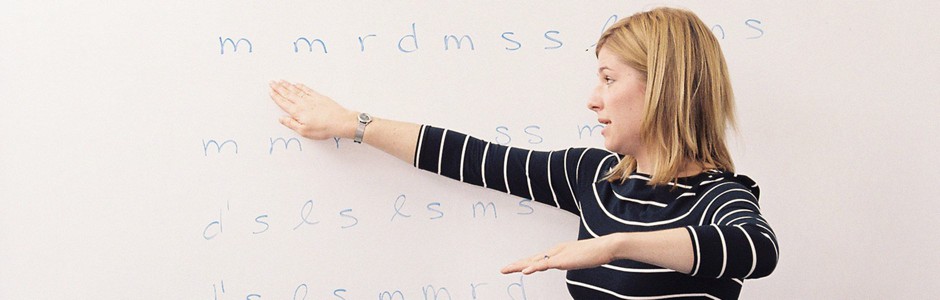 m m r d m s s m s
m m r s s m
d' s l s l s m s
s l s m m r d